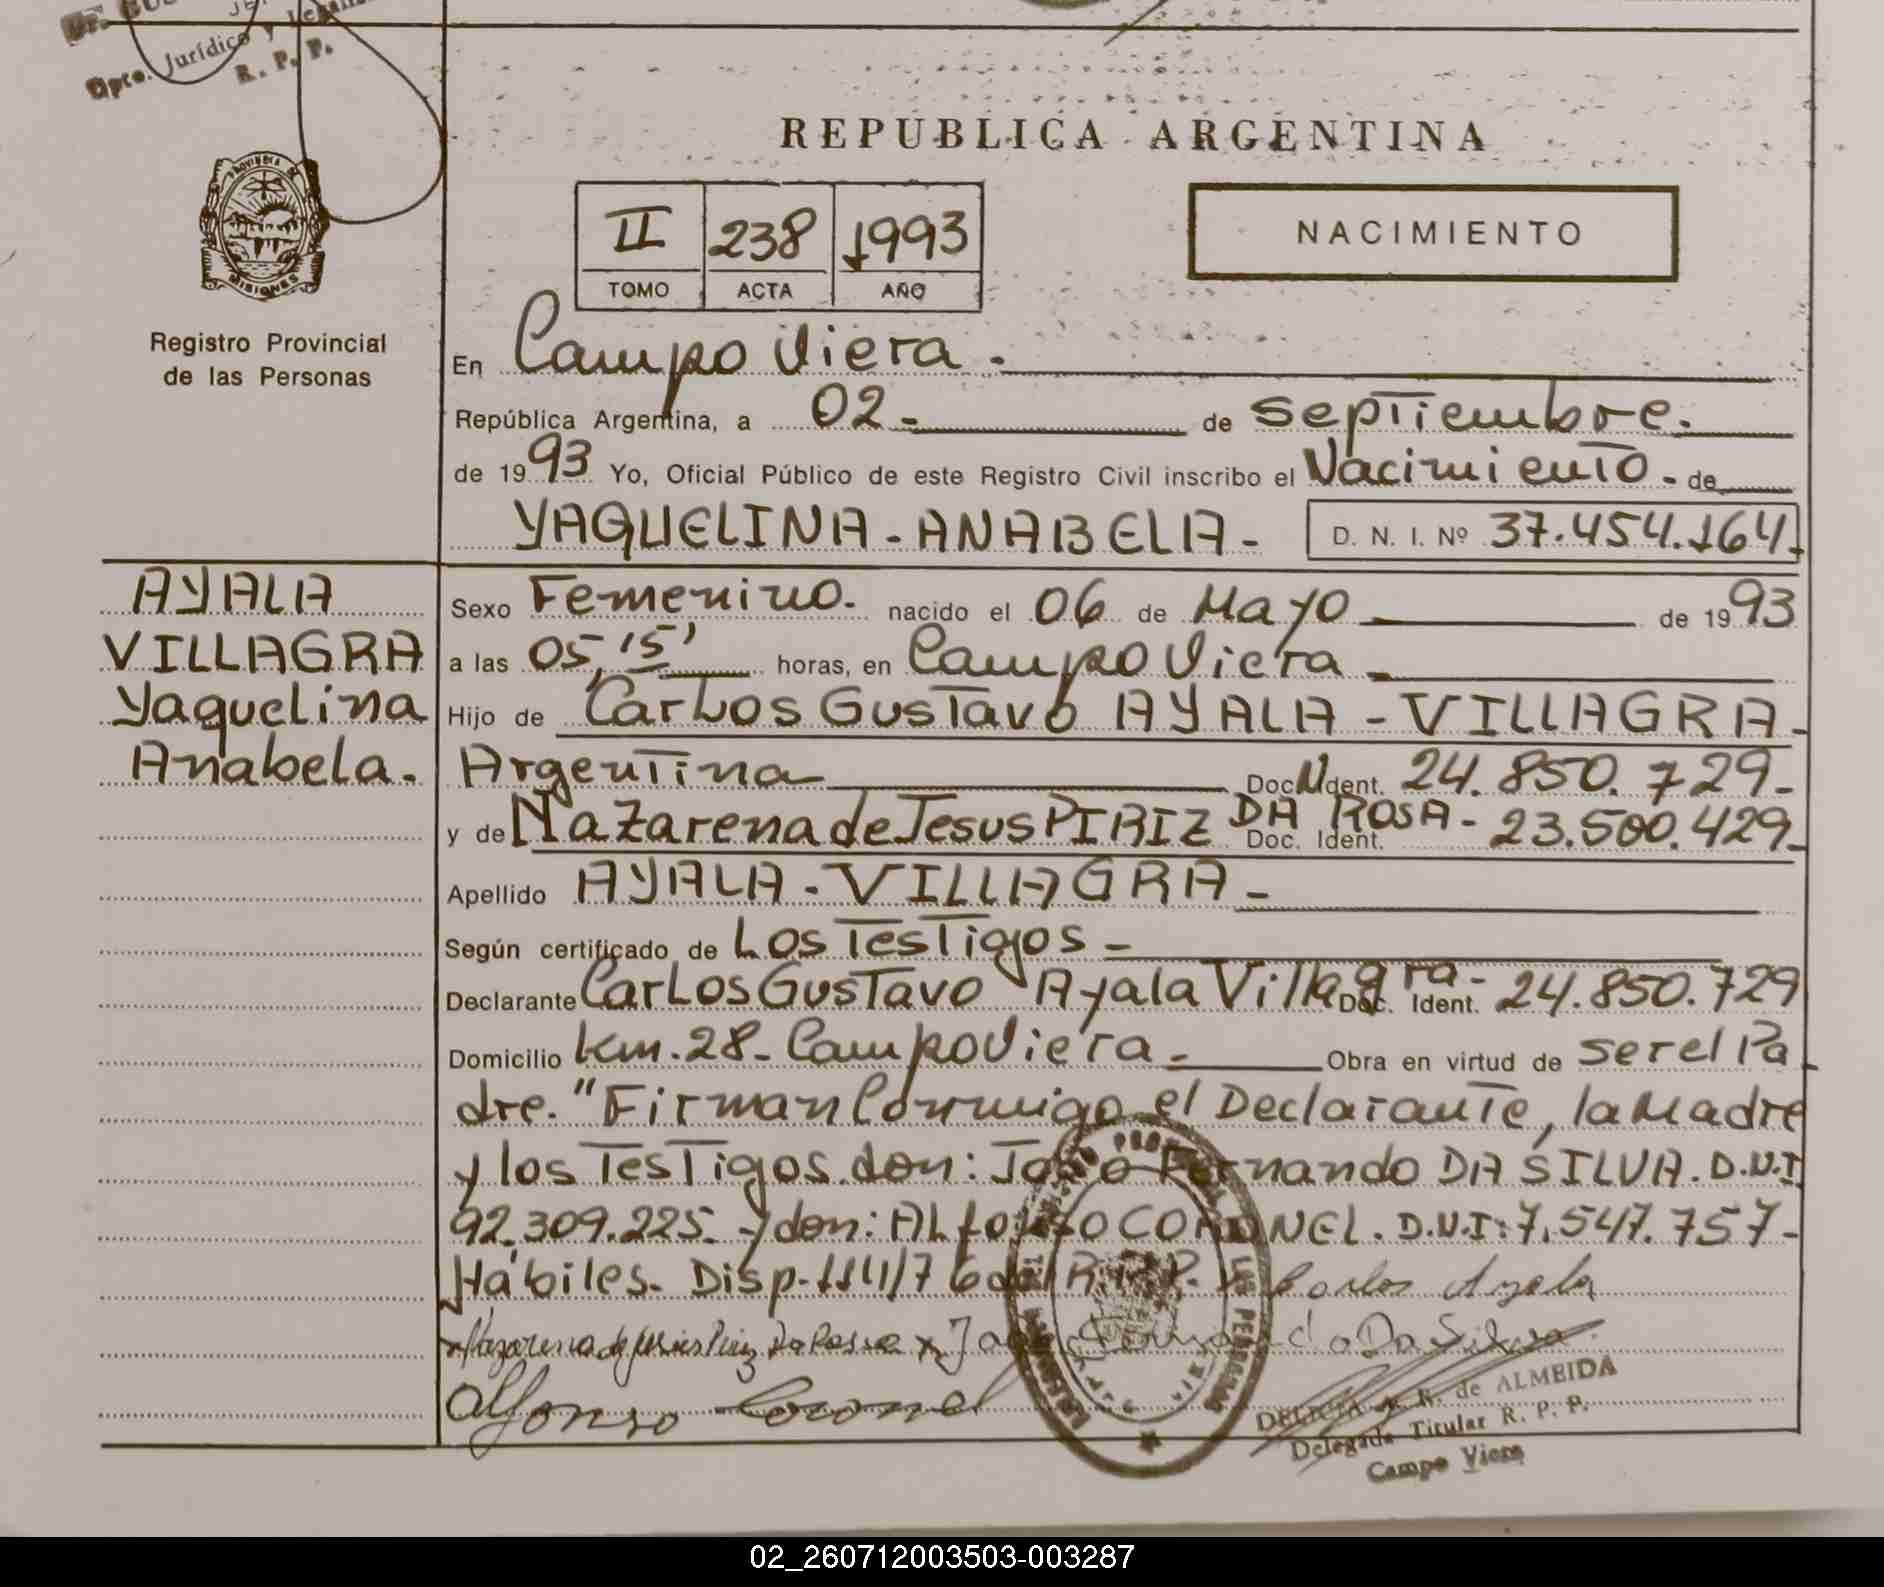 Dpto. Jurídico y
R. P. P.
REPUBLICA ARGENTINA
PROVINCIA DE
MISIONES
II 238 1993
TOMO ACTA AÑO
NACIMIENTO
Registro Provincial
de las Personas
En Campo Viera -
República Argentina, a 02 - de septiembre.
de 1993 Yo, Oficial Público de este Registro Civil inscribo el Nacimiento - de
YAQUELINA - ANABELIA - D. N. I. Nº 37.454.164.
AYALA
VILLAGRA
Yaquelina
Anabela.
Sexo Femenino. nacido el 06 de Mayo de 1993
a las 05,15' horas, en Campo Viera -
Hijo de Carlos Gustavo AYALA - VILLAGRA -
Argentina Doc. Ident. 24.850.729 -
y de Nazarena de Jesus PIRIZ DA ROSA - Doc. Ident. 23.500.429 -
Apellido AYALA - VILLAGRA -
Según certificado de Los Testigos -
Declarante Carlos Gustavo Ayala Villagra - Doc. Ident. 24.850.729
Domicilio km. 28 - Campo Viera - Obra en virtud de ser el Pa
dre. "Firman Conmigo el Declarante, la Madre
y los Testigos. don: Joao Fernando DA SILVA. D.N.I
92.309.225. y don: ALfonso CORONEL. D.N.I: 7.547.757 -
Hábiles. Disp. 1141/76 del R.P.P. Carlos Ayala
x Nazarena de Jesus Piriz Da Rossa x Joao Fernando Da Silva
Alfonso Coronel
DELICIA A. R. de ALMEIDA
Delegada Titular R. P. P.
Campo Viera
02_260712003503-003287